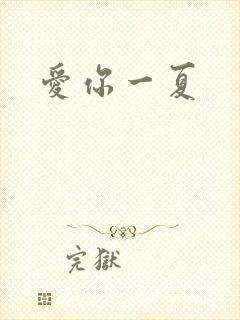 愛你一夏
完獄